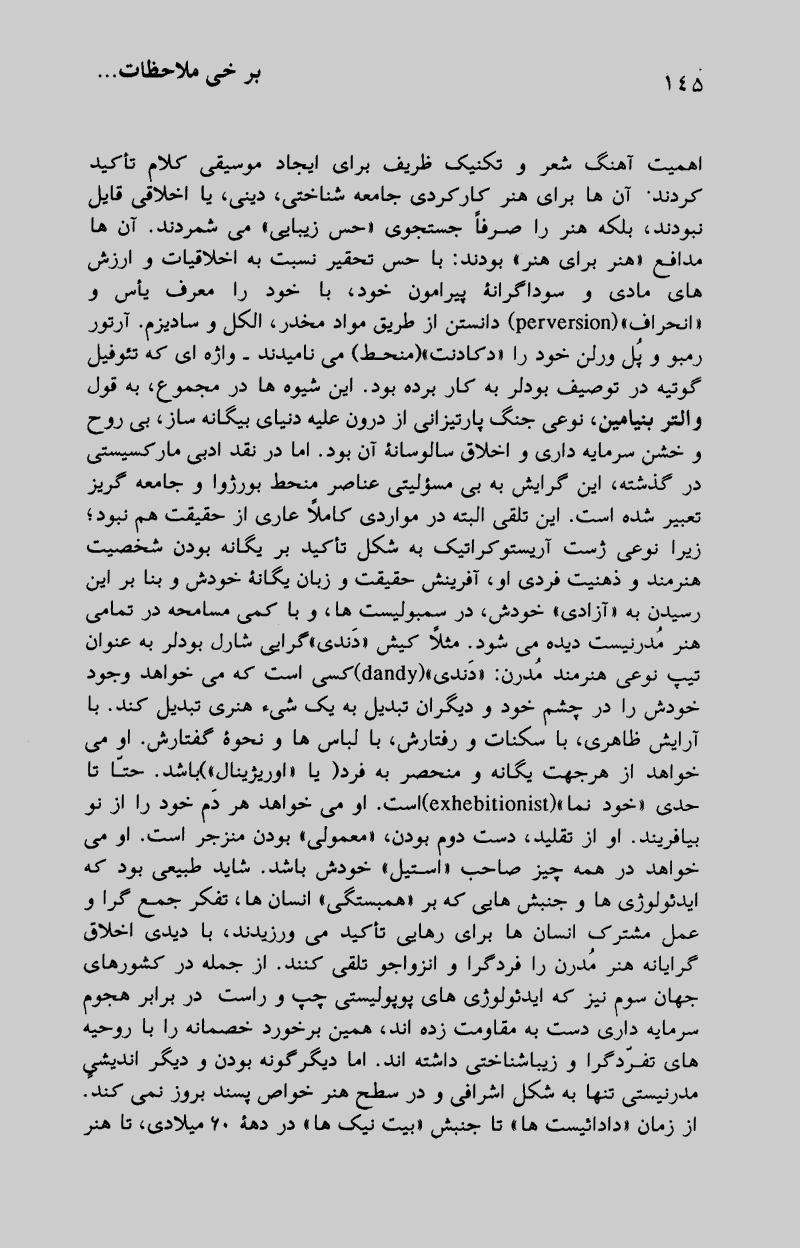 ۱۴۵
بر خی ملاحظات...
اهمیت آهنگ شعر و تکنیک ظریف برای ایجاد موسیقی کلام تأکید
کردند. آن ها برای هنر کارکردی جامعه شناختی، دینی، یا اخلاقی قایل
نبودند، بلکه هنر را صرفاً جستجوی «حس زیبایی» می شمردند. آن ها
مدافع «هنر برای هنر» بودند: با حس تحقیر نسبت به اخلاقیات و ارزش
های مادی و سوداگرانهٔ پیرامون خود، با خود را معرف یأس و
«انحراف»(perversion) دانستن از طریق مواد مخدر، الکل و سادیزم. آرتور
رمبو و پُل ورلن خود را «دکادنت»(منحط) می نامیدند ـ واژه ای که تئوفیل
گوتیه در توصیف بودلر به کار برده بود. این شیوه ها در مجموع، به قول
والتر بنیامین، نوعی جنگ پارتیزانی از درون علیه دنیای بیگانه ساز، بی روح
و خشن سرمایه داری و اخلاق سالوسانهٔ آن بود. اما در نقد ادبی مارکسیستی
در گذشته، این گرایش به بی مسؤلیتی عناصر منحط بورژوا و جامعه گریز
تعبیر شده است. این تلقی البته در مواردی کاملاً عاری از حقیقت هم نبود؛
زیرا نوعی ژست آریستوکراتیک به شکل تأکید بر یگانه بودن شخصیت
هنرمند و ذهنیت فردی او، آفرینش حقیقت و زبان یگانهٔ خودش و بنا بر این
رسیدن به «آزادی» خودش، در سمبولیست ها، و با کمی مسامحه در تمامی
هنر مُدرنیست دیده می شود. مثلاً کیش «دَندی»گرایی شارل بودلر به عنوان
تیپ نوعی هنرمند مُدرن: «دَندی»(dandy)کسی است که می خواهد وجود
خودش را در چشم خود و دیگران تبدیل به یک شیء هنری تبدیل کند. با
آرایش ظاهری، با سکنات و رفتارش، با لباس ها و نحوهٔ گفتارش. او می
خواهد از هرجهت یگانه و منحصر به فرد( یا «اوریژینال»)باشد. حتّا تا
حدی «خود نما»(exhebitionist)است. او می خواهد هر دَم خود را از نو
بیافریند. او از تقلید، دست دوم بودن، «معمولی» بودن منزجر است. او می
خواهد در همه چیز صاحب «استیل» خودش باشد. شاید طبیعی بود که
ایدئولوژی ها و جنبش هایی که بر «همبستگی» انسان ها، تفکر جمع گرا و
عمل مشترک انسان ها برای رهایی تأکید می ورزیدند، با دیدی اخلاق
گرایانه هنر مُدرن را فردگرا و انزواجو تلقی کنند. از جمله در کشورهای
جهان سوم نیز که ایدئولوژی های پوپولیستی چپ و راست در برابر هجوم
سرمایه داری دست به مقاومت زده اند، همین برخورد خصمانه را با روحیه
های تفرّدگرا و زیباشناختی داشته اند. اما دیگرگونه بودن و دیگر اندیشیِ
مدرنیستی تنها به شکل اشرافی و در سطح هنر خواص پسند بروز نمی کند.
از زمان «دادائیست ها» تا جنبش «بیت نیک ها» در دههٔ ۶۰ میلادی، تا هنر